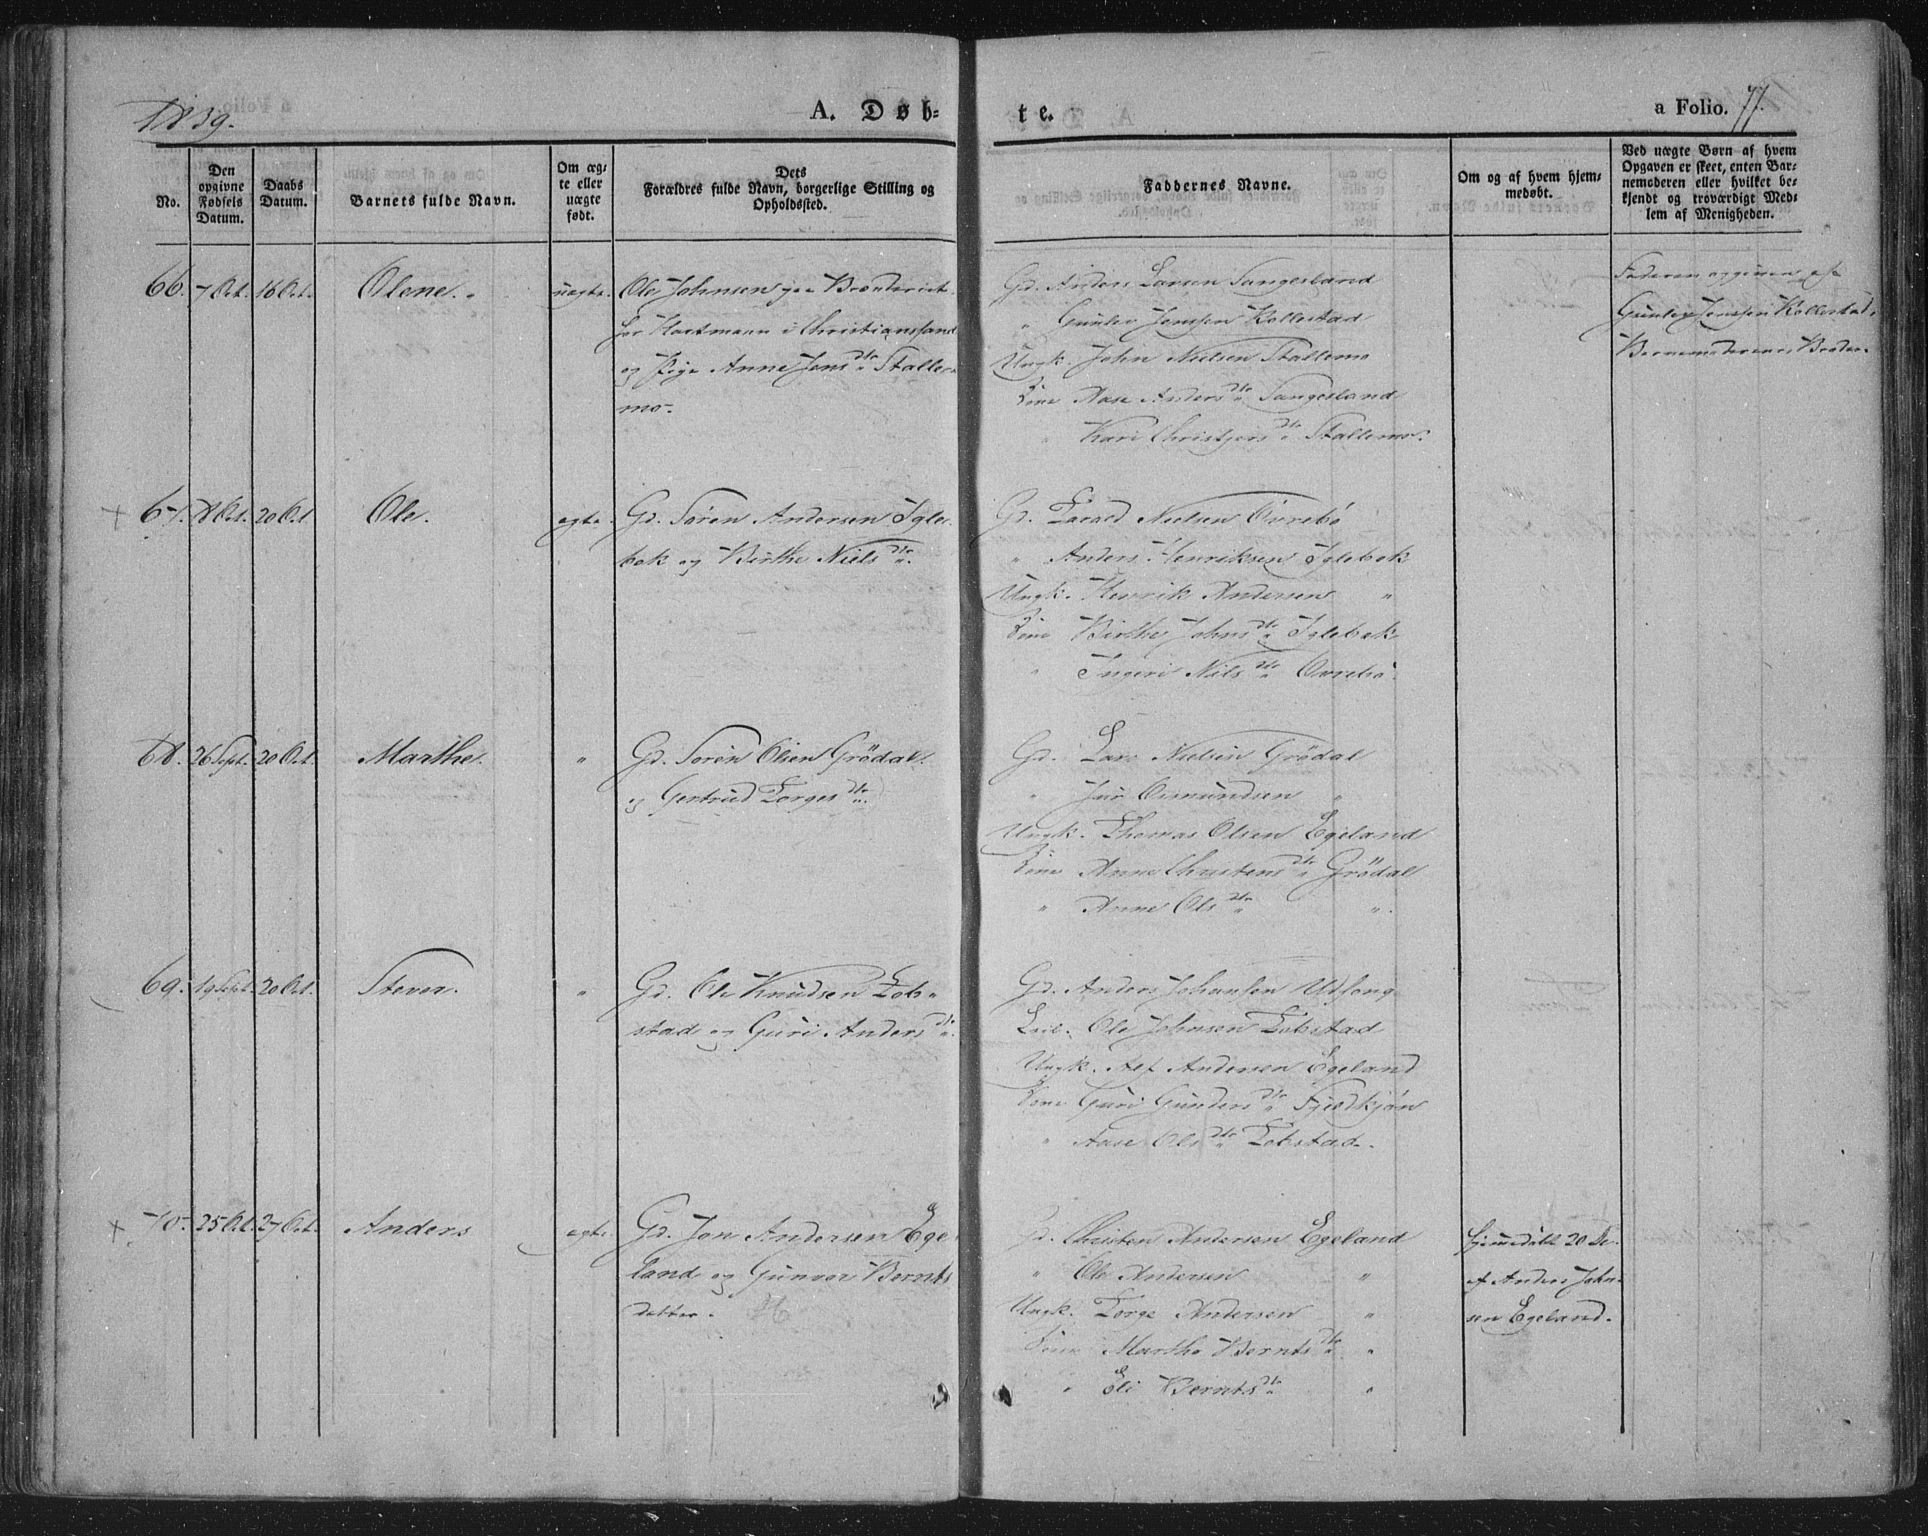 1839.
A. Døb-
te.
a Folio. 77.
No.
Den
opgivne
Fødsels
Datum.
Daabs
Datum.
Barnets fulde Navn.
Om æg-
te eller
uægte
født.
Dets
Forældres fulde Navn, borgerlige Stilling og
Opholdssted.
Faddernes Navne.
Om og af hvem hjem-
medøbt.
Ved uægte Børn af hvem
Opgaven er skeet, enten Bar-
nemoderen eller hvilket be-
kjendt og troværdigt Med-
lem af Menigheden.
66. 7 Oct. 16 Oct. Olene. uægte. Ole Johnsen paa Brænderiet
hos Hartmann i Christianssand
og Pige Anne Jensdtr Stalle-
mo.
Gd. Anders Larsen Sangesland
" Gunlev Jenssen Kollestad
Ungk. John Nielsen Stallemo
Kone Aase Andersdtr Sangesland
" Kari Christensdtr Stallemo.
Faderen opgiven af
Gunlev Jenssen Kollestad,
Barnemoderens Broder.
67. 8 Oct. 20 Oct. Ole. ægte. Gd. Sören Andersen Igle-
bek og Birthe Nielsdtr.
Gd. Tarald Nielsen Övrebö
" Anders Henriksen Iglebek
Ungk. Henrik Andersen "
Kone Birthe Johnsdtr Iglebek
" Ingeri Nilsdtr Övrebö.
68. 26 Sept. 20 Oct. Marthe. " Gd. Sörin Olsen Grödal
og Gertrud Torgesdtr.
Gd. Lars Nielsen Grödal
" Osmundsen "
Ungk. Thomas Olsen Egeland
Kone Anne Christensdtr Grödal
" Anne Olsdtr ".
69. 19 Sept. 20 Oct. " Gd. Ole Knudsen Tob-
stad og Guri Andersdtr.
Gd. Anders Johansen
Ole Johnsen Tobstad
Ungk. Andersen Egeland
Kone Guri Gundersdtr Fjeldkjön
" Aase Olsdtr Tobstad.
70. 25 Oct. 27 Oct. Anders ægte Gd. Jon Andersen Ege-
land og Gunvor Bernts
datter.
Gd. Christen Andersen Egeland
" Ole Andersen "
Ungk. Torge Andersen "
Kone Marthe Berntsdtr "
" Eli Berntsdtr "
Hjemmedöbt
af Anders John-
sen Egeland.